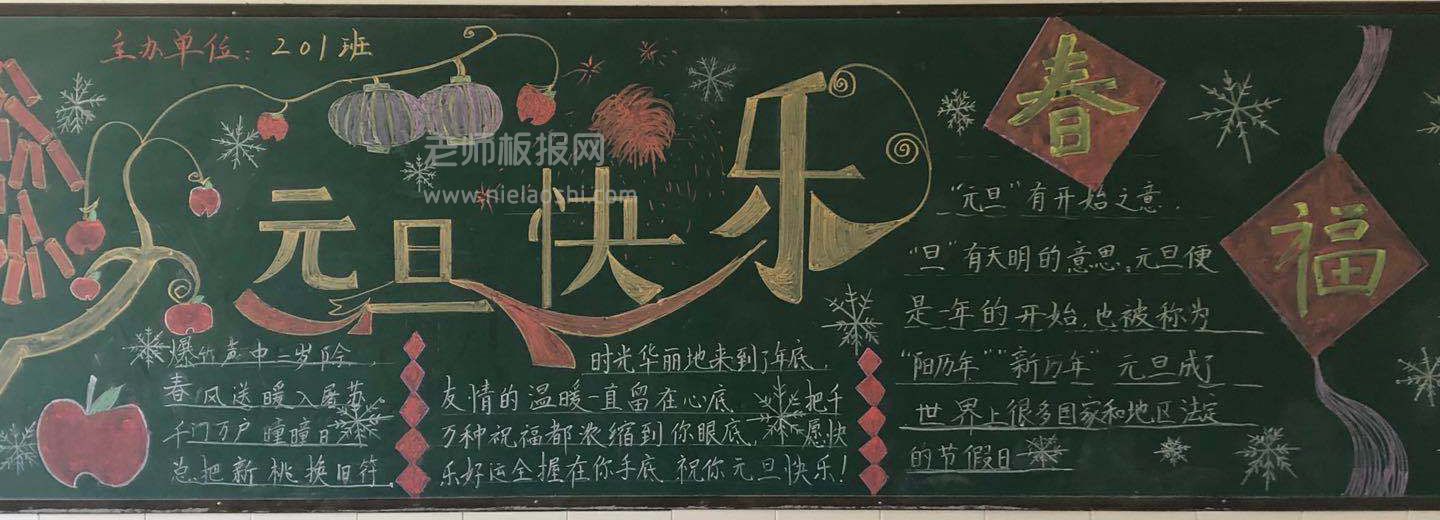 主办单位：201班
老师板报网
www.nielaoshi.com
元旦快乐
爆竹声中二岁除，
春风送暖入屠苏。
千门万户曈曈日
总把新桃换旧符
时光华丽地来到了年底，
友情的温暖一直留在心底 把千
万种祝福都浓缩到你眼底，愿快
乐好运全握在你手底 祝你元旦快乐！
春
"元旦"有开始之意，
"旦"有天明的意思。元旦便
是一年的开始，也被称为
"阳历年""新历年" 元旦成了
世界上很多国家和地区法定
的节假日
福